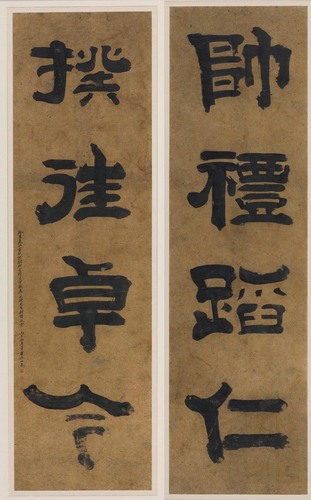 帥禮蹈仁
揆往卓今